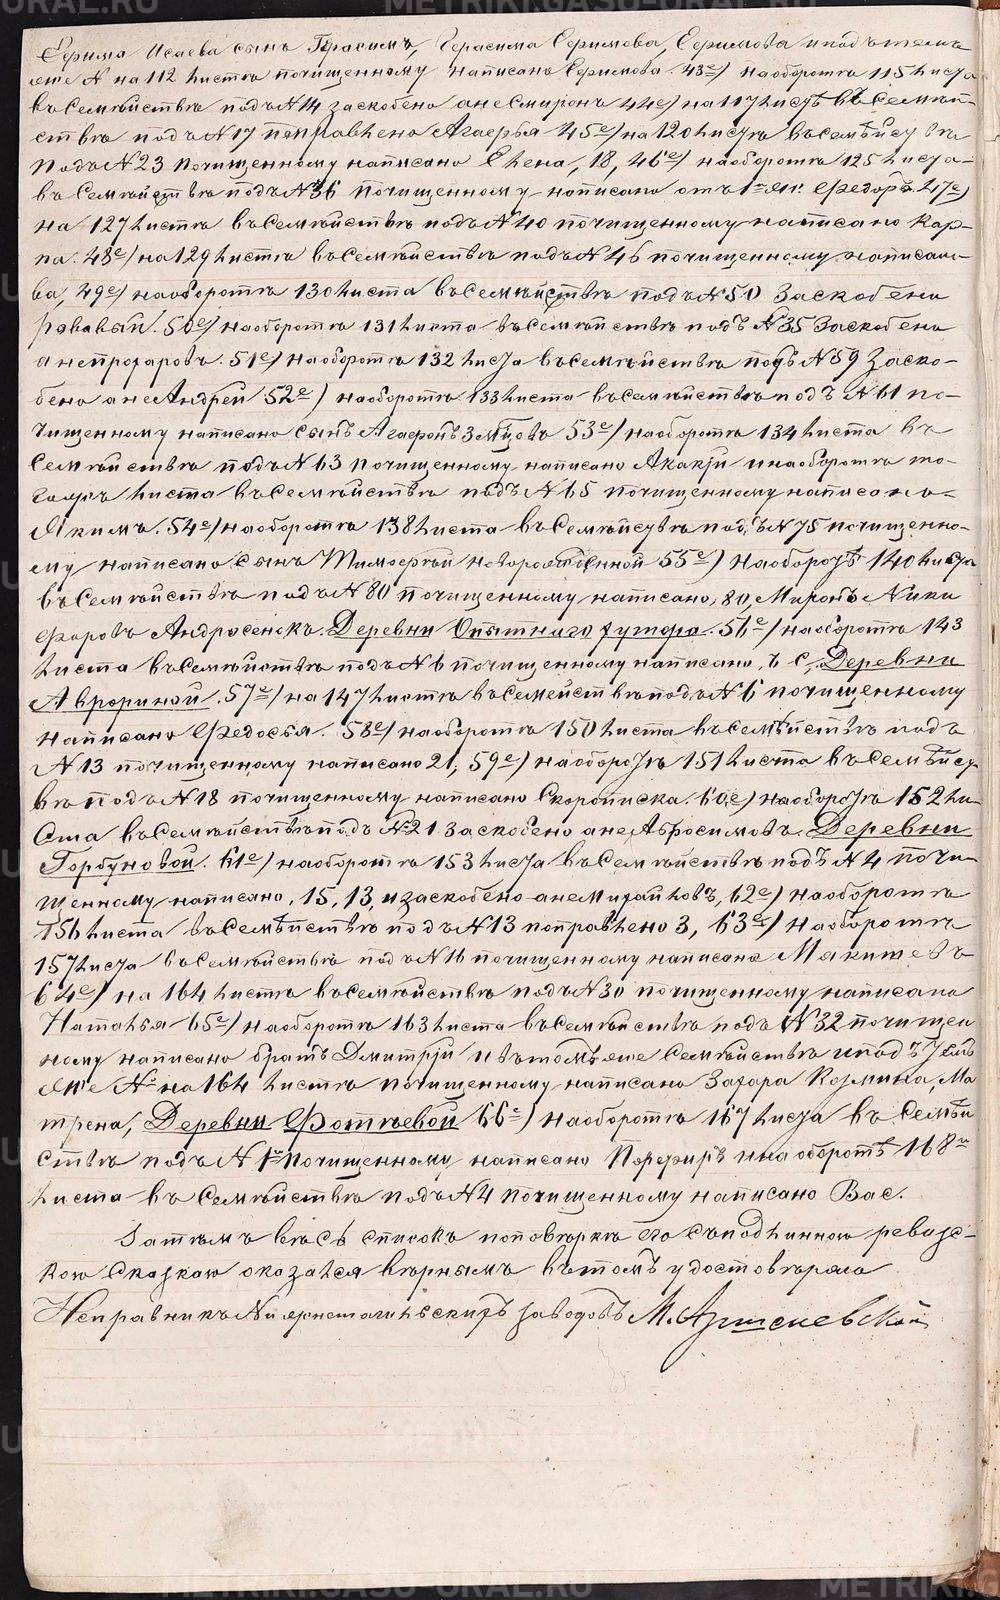 Ефима Исаева сынъ Герасимъ, Герасима Ефимова, Ефимова и подъ темъ
же № на 112 листѣ почищенному написано Ефимова. 43е) на оборотѣ 115 листа
въ семѣйствѣ подъ № 14 заскоблено а не Смиронъ 44е) на 117 листѣ въ семѣй-
ствѣ подъ № 17 поправлено Агафья 45е) на 120 листѣ въ семѣйствѣ
подъ № 23 почищенному написано Елена, 18, 46е) на оборотѣ 125 листа
въ семѣйствѣ подъ № 36 почищенному написано отъ 1й Федоръ 47е)
на 127 листѣ въ семѣйствѣ подъ № 40 почищенному написано Кар-
па. 48е) на 129 листѣ въ семѣйствѣ подъ № 46 почищенному написано
ва, 49е) на оборотѣ 130 листа въ семѣйствѣ подъ № 50 заскоблено
50е) на оборотѣ 131 листа въ семѣйствѣ подъ № 35 заскоблено
а не 51е) на оборотѣ 132 листа въ семѣйствѣ подъ № 59 заско-
блено а не Андрей 52е) на оборотѣ 133 листа въ семѣйствѣ подъ № 61 по-
чищенному написано сынъ Агафонъ 53е) на оборотѣ 134 листа въ
семѣйствѣ подъ № 63 почищенному написано Акакiи и на оборотѣ то-
гожъ листа въ семѣйствѣ подъ № 65 почищенному написано
Якимъ. 54е) на оборотѣ 138 листа въ семѣйствѣ подъ № 75 почищенно-
му написано сынъ Тимофей новорожденной 55е) на оборотѣ 140 листа
въ семѣйствѣ подъ № 80 почищенному написано, 80, Миронъ Ники
форовъ Андросенокъ. Деревни Опытнаго хутора. 56е) на оборотѣ 143
листа въ семѣйствѣ подъ № 6 почищенному написано, ъ с, Деревни
Аврориной. 57е) на 147 листѣ въ семействѣ подъ № 6 почищенному
написано Федосья. 58е) на оборотѣ 150 листа въ семѣйствѣ подъ
№ 13 почищенному написано 21, 59е) на оборотѣ 151 листа въ семѣйст
вѣ подъ № 18 почищенному написано Скорописка. 60е) на оборотѣ 152 ли
ста въ семѣйствѣ подъ № 21 заскоблено а не Абросимовъ. Деревни
Горбуновой. 61е) на оборотѣ 153 листа въ семѣйствѣ подъ № 4 почи-
щенному написано, 15, 13, и заскоблено а не Михайловъ, 62е) на оборотѣ
156 листа въ семѣйствѣ подъ № 13 поправлено 3, 63е) на оборотѣ
157 листа въ семѣйствѣ подъ № 16 почищенному написано
64е) на 164 листѣ въ семѣйствѣ подъ № 30 почищенному написано
Наталья 65е) на оборотѣ 163 листа въ семѣйствѣ подъ № 32 почищен
ному написано братъ Дмитрiй и въ томъ же семѣйствѣ и подъ тѣмъ
же № на 164 листѣ почищенному написано Захара Козмина, Ма
трена, Деревни Фотѣевой 66е) на оборотѣ 167 листа въ семѣй
ствѣ подъ № 1м почищенному написано Порфирiъ и на оборотѣ 168го
листа въ семѣйствѣ подъ № 4 почищенному написано Вас.
Затѣмъ весь списокъ по повѣркѣ его съ подлинною ревизс-
кою сказкою оказался вѣрнымъ въ томъ удостовѣряю
Исправникъ Нижнетагильскихъ заводовъ М.